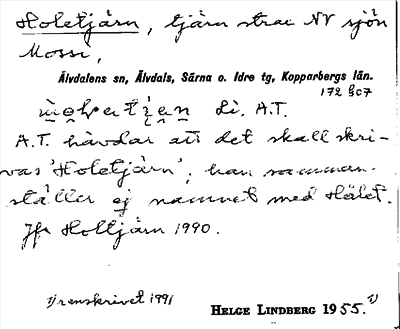 Holetjärn, tjärn strax NV sjön
Mossi,
Älvdalens sn, Älvdals, Särna o. Idre tg, Kopparbergs län.
172 Bc7
Li. A.T.
A.T. hävdar att det skall skri-
vas 'Holetjärn', han samman-
ställer ej namnet med Hålet.
Jfr Holtjärn 1990.
1) renskrivet 1991
HELGE LINDBERG 1955. 1)